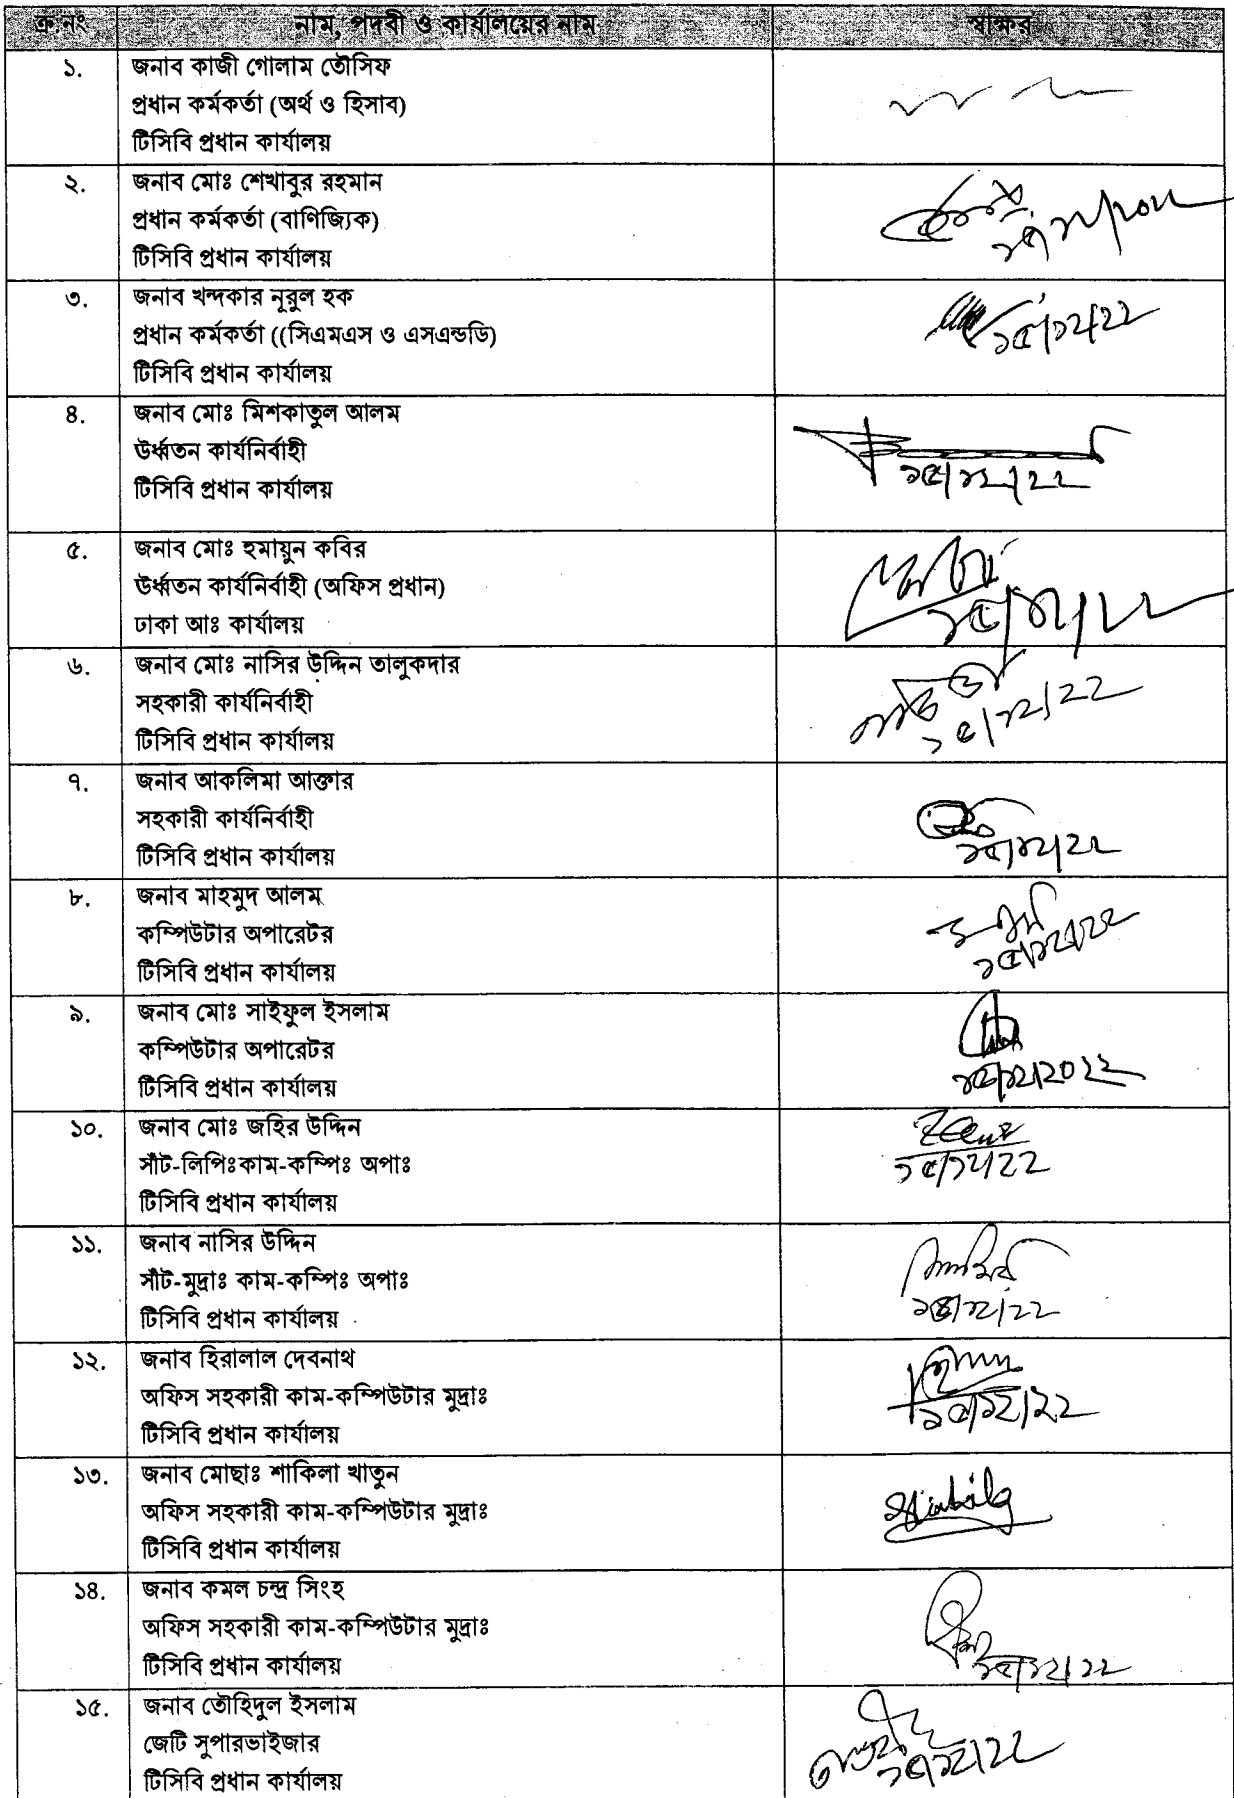 ক্র.নং নাম, পদবী ও কার্যালয়ের নাম স্বাক্ষর
১. জনাব কাজী গোলাম তৌসিফ
প্রধান কর্মকর্তা (অর্থ ও হিসাব)
টিসিবি প্রধান কার্যালয়
২. জনাব মোঃ শেখাবুর রহমান
প্রধান কর্মকর্তা (বাণিজ্যিক)
টিসিবি প্রধান কার্যালয়
৩. জনাব খন্দকার নূরুল হক
প্রধান কর্মকর্তা ((সিএমএস ও এসএন্ডডি)
টিসিবি প্রধান কার্যালয়
১৫/১২/২২
৪. জনাব মোঃ মিশকাতুল আলম
উর্ধ্বতন কার্যনির্বাহী
টিসিবি প্রধান কার্যালয়
১৫/১২/২২
৫. জনাব মোঃ হুমায়ুন কবির
উর্ধ্বতন কার্যনির্বাহী (অফিস প্রধান)
ঢাকা আঃ কার্যালয়
১৫/১২/২২
৬. জনাব মোঃ নাসির উদ্দিন তালুকদার
সহকারী কার্যনির্বাহী
টিসিবি প্রধান কার্যালয়
১৫/১২/২২
৭. জনাব আকলিমা আক্তার
সহকারী কার্যনির্বাহী
টিসিবি প্রধান কার্যালয়
১৫/১২/২২
৮. জনাব মাহমুদ আলম
কম্পিউটার অপারেটর
টিসিবি প্রধান কার্যালয়
১৫/১২/২২
৯. জনাব মোঃ সাইফুল ইসলাম
কম্পিউটার অপারেটর
টিসিবি প্রধান কার্যালয়
১৫/১২/২০২২
১০. জনাব মোঃ জহির উদ্দিন
সাঁট-লিপিঃকাম-কম্পিঃ অপাঃ
টিসিবি প্রধান কার্যালয়
১৫/১২/২২
১১. জনাব নাসির উদ্দিন
সাঁট-মুদ্রাঃ কাম-কম্পিঃ অপাঃ
টিসিবি প্রধান কার্যালয়
১৫/১২/২২
১২. জনাব হিরালাল দেবনাথ
অফিস সহকারী কাম-কম্পিউটার মুদ্রাঃ
টিসিবি প্রধান কার্যালয়
১৫/১২/২২
১৩. জনাব মোছাঃ শাকিলা খাতুন
অফিস সহকারী কাম-কম্পিউটার মুদ্রাঃ
টিসিবি প্রধান কার্যালয়
১৪. জনাব কমল চন্দ্র সিংহ
অফিস সহকারী কাম-কম্পিউটার মুদ্রাঃ
টিসিবি প্রধান কার্যালয়
১৫/১২/২২
১৫. জনাব তৌহিদুল ইসলাম
জেটি সুপারভাইজার
টিসিবি প্রধান কার্যালয়
১৫/১২/২২